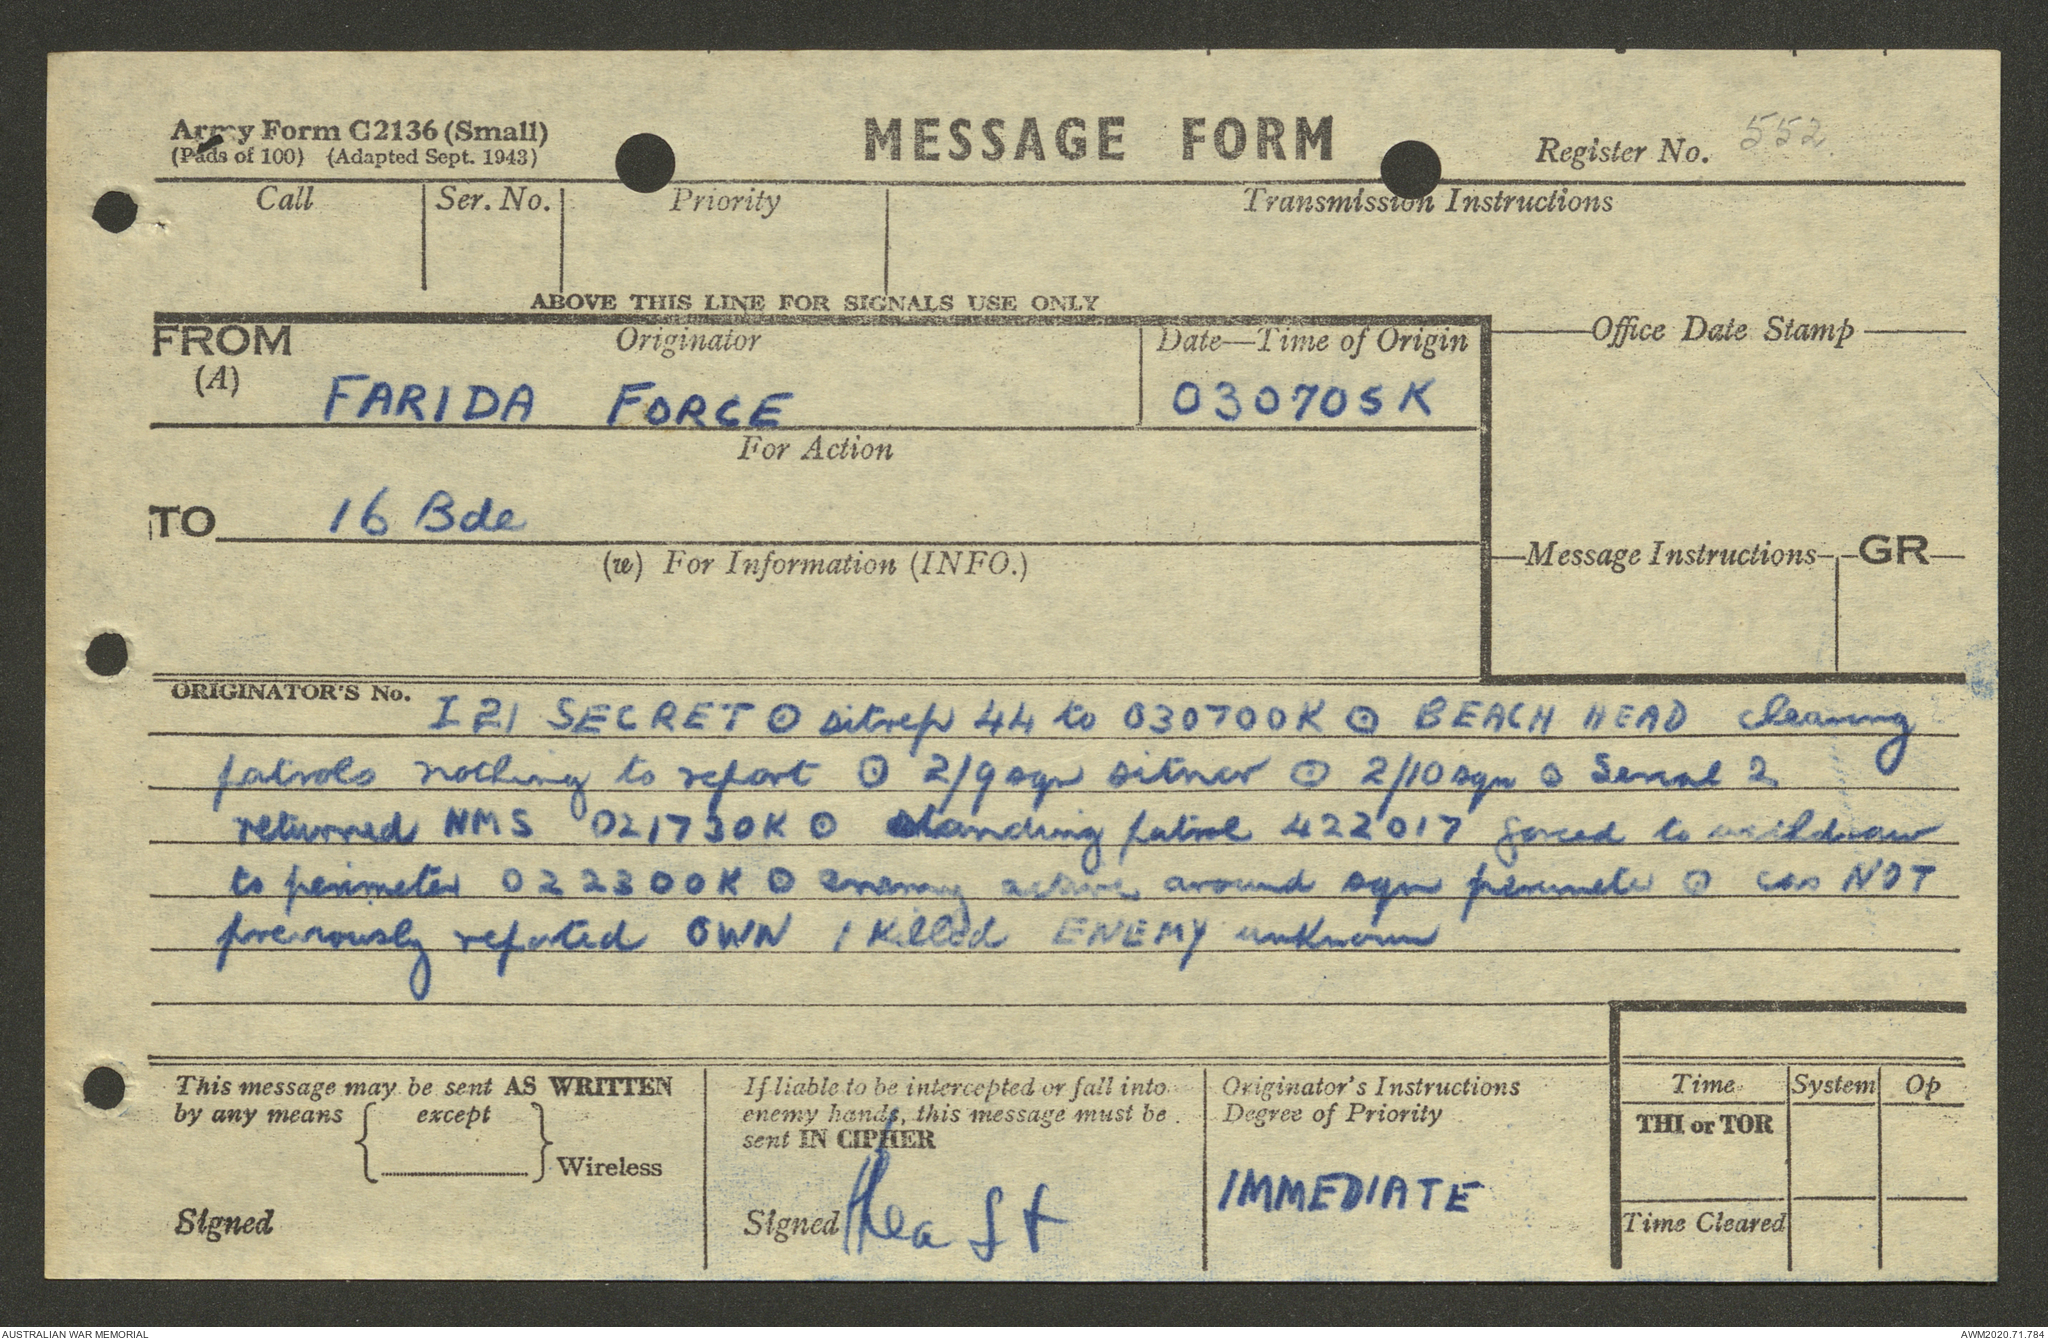 Army Form C2136 (Small)
(Pads of 100) (Adapted Sept. 1943)
MESSAGE FORM
Register No. 552
Call Ser. No. Priority Transmission Instructions
ABOVE THIS LINE FOR SIGNALS USE ONLY
FROM (A) Originator Date—Time of Origin Office Date Stamp
FARIDA FORCE 030705K
For Action
TO 16 Bde
(w) For Information (INFO.) Message Instructions GR
ORIGINATOR'S No.
I 21 SECRET ⊙ sitrep 44 to 030700K ⊙ BEACH HEAD clearing
patrols nothing to report ⊙ 2/9 sqn sitnor ⊙ 2/10 sqn ⊙ Serial 2
returned NMS 021730K ⊙ standing patrol 422017 forced to withdraw
to perimeter 022300K ⊙ enemy active around sqn perimeter ⊙ cas NOT
previously reported OWN 1 killed ENEMY unknown
This message may be sent AS WRITTEN
by any means except
Wireless
Signed
If liable to be intercepted or fall into
enemy hands, this message must be
sent IN CIPHER
Signed
Originator's Instructions
Degree of Priority
IMMEDIATE
Time System Op
THI or TOR
Time Cleared
AUSTRALIAN WAR MEMORIAL AWM2020.71.784